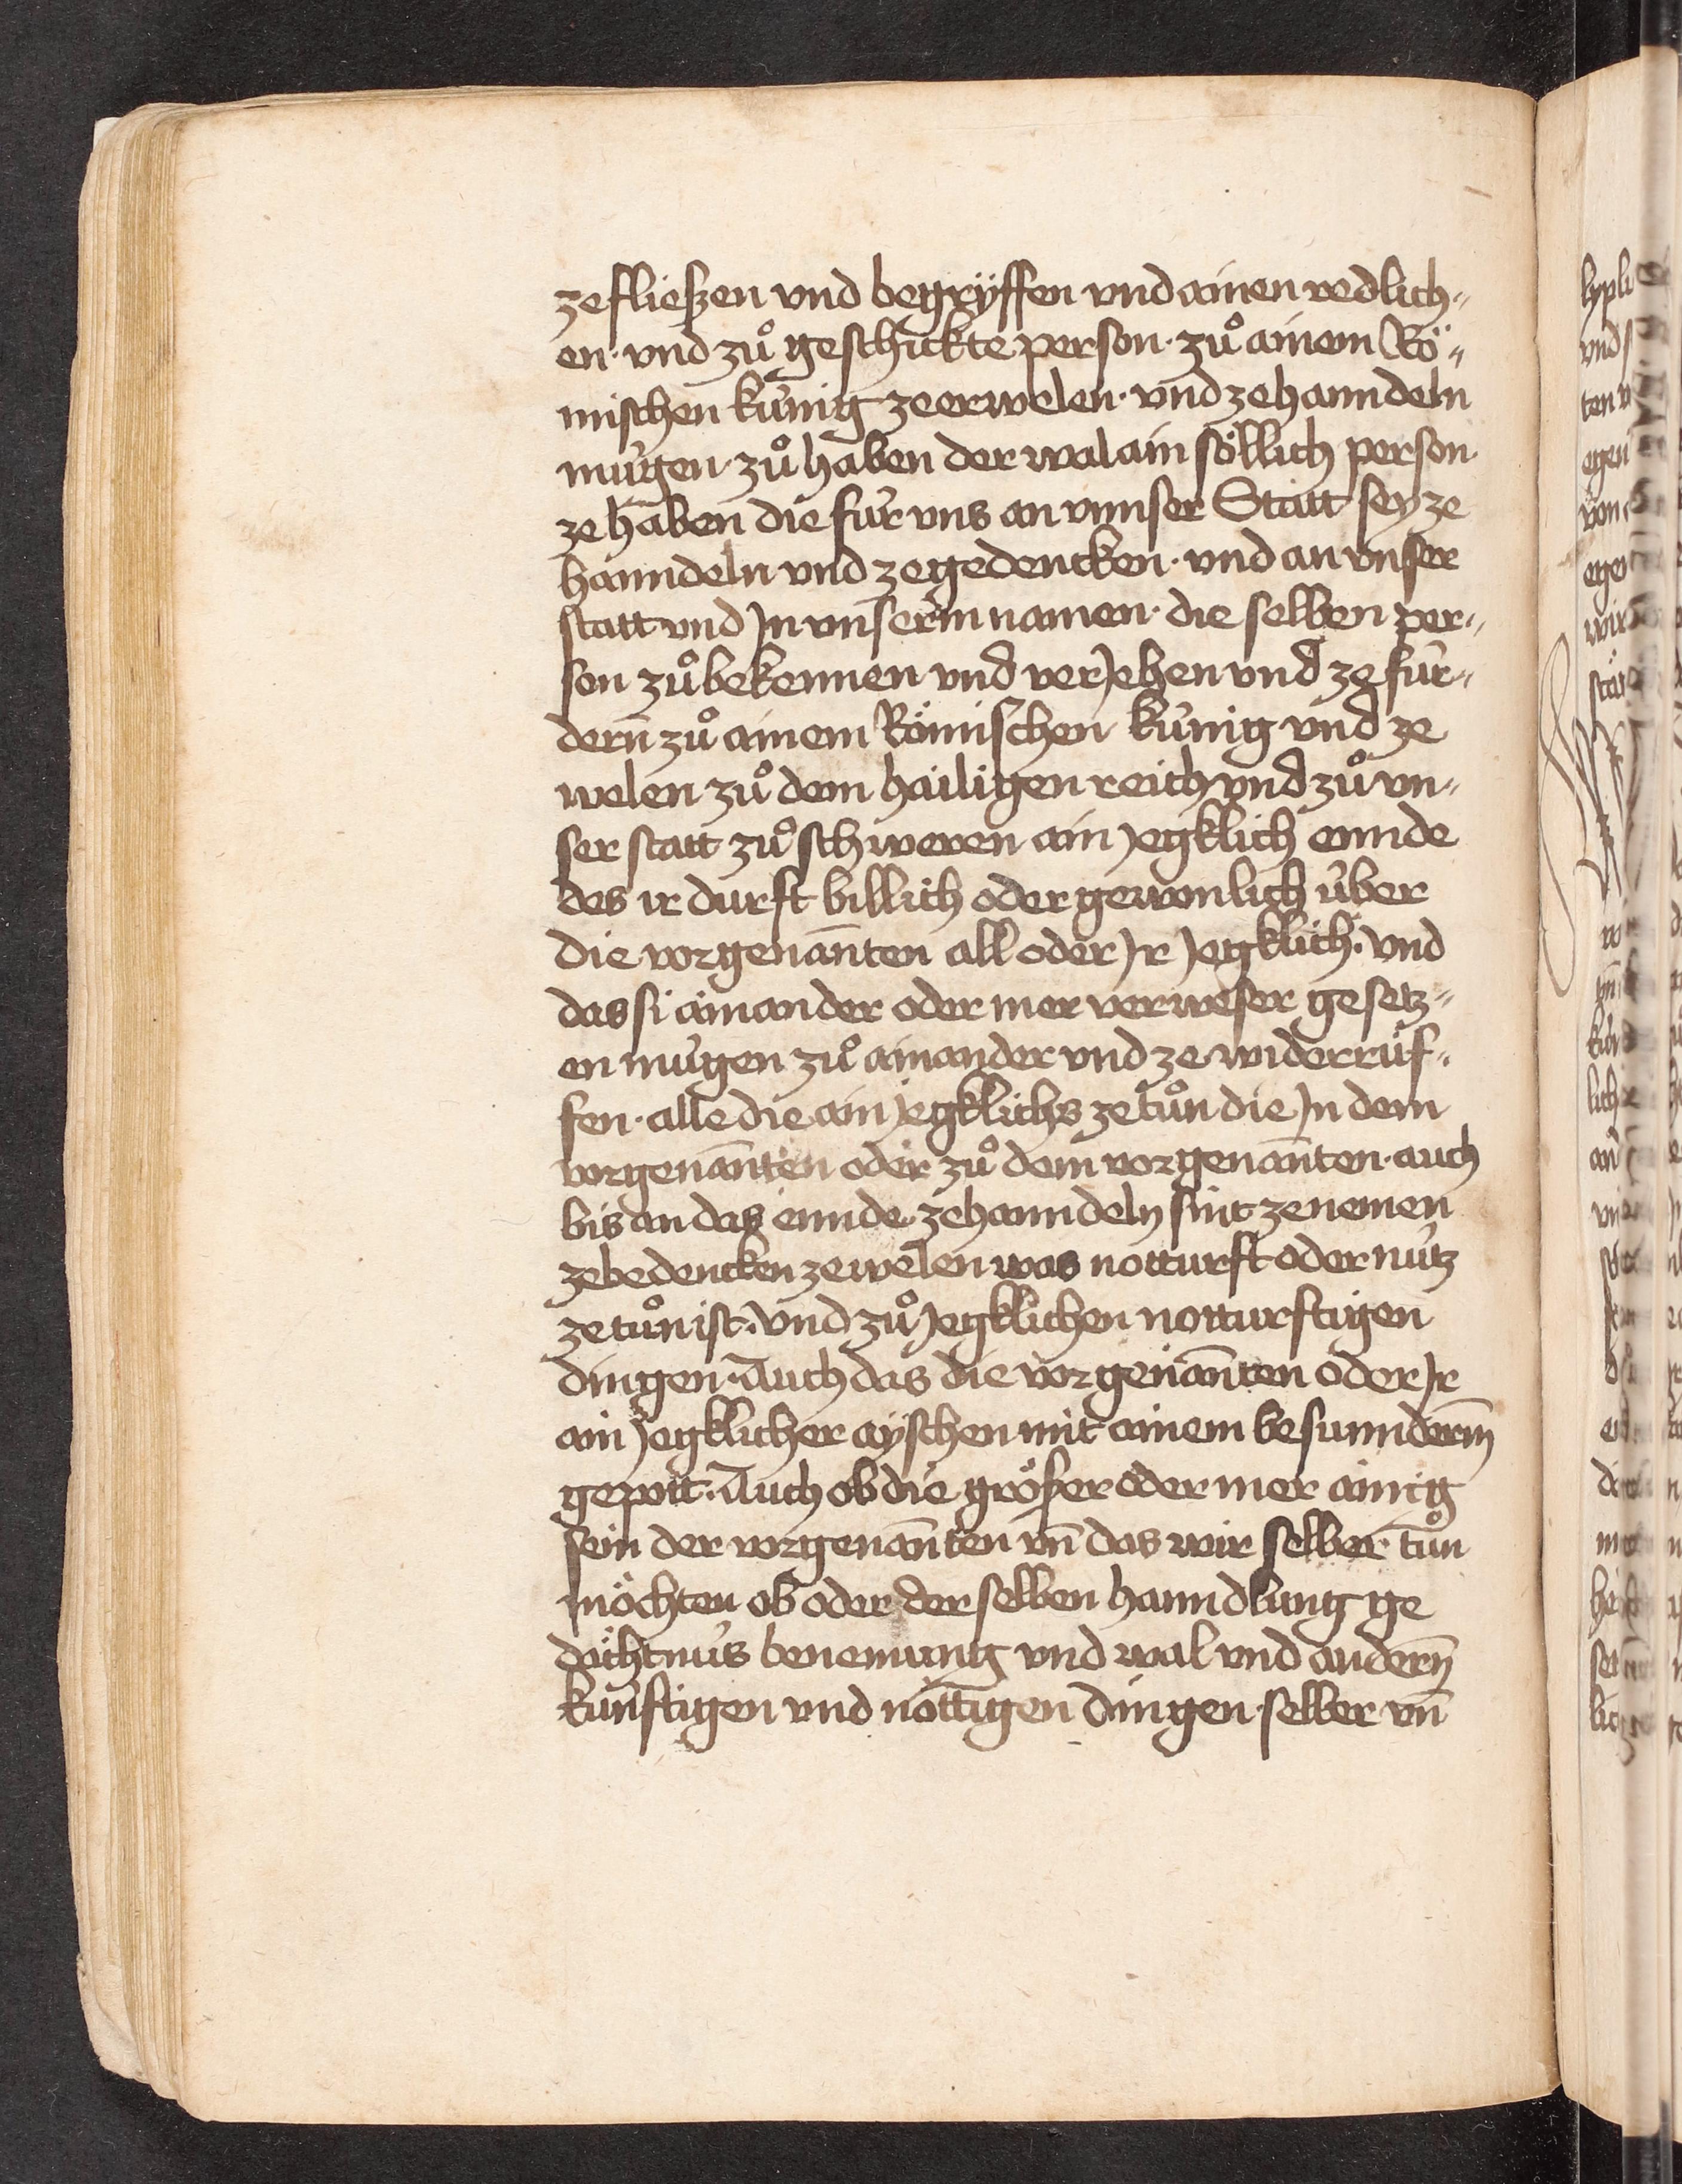 zefließen vnd begryͤffen vnd ainen redlich„
en· vnd zuͦ geschickte person· zuͦ ainem Rö„
mischen küͤnig zeerwelen· vnd zehanndeln
muͤgen· zuͦ haben der wal ain soͤllich person
ze haben die fuͤr vns an vnnser Statt sey ze
hanndeln vnd zegedencken· vnd an vnser
statt vnd Jn vnserm namen· die selben per„
son zuͦ bekennen vnd verJehen vnd ze fuͤr„
dern zuͦ ainem Roͤmischen kuͤnig vnd ze
welen zuͦ dem hailigen reich vnd zuͦ vn„
ser statt zuͦ schweren ain Jegklich ennde
des ir durft billich oder gewonlich uͤber
die vorgenan̄ten all oder Jr Jegklich· vnd
das si ainander oder mer verweser gesetz„
en muͤgen zuͦ ainander vnd ze widerruͤf„
fen· alle die ain Jegklichs ze tuͦn die Jn dem
vorgenan̄ten oder zuͦ dem vorgenan̄ten· auch
bis an das ennde· zehanndeln sint zenemen
zebedencken zewelen was notturft oder nutz
ze tuͦn ist· vnd zuͦ Jegklichen notturftigen
dingen· Auch das die vorgenan̄ten oder Jr
ain Jegklicher ayschen mit ainem besunnderm̄
gepott· Auch ob die groͤßer oder mer ainig
sein der vorgenan̄ten vn̄ das wir selber tuͦn
moͤchten ob oder derselben hanndlung ge
daͤchtnuͤs benemung vnd wal vnd andern̄
kunftigen vnd noͤttigen dingen· selber vn̄